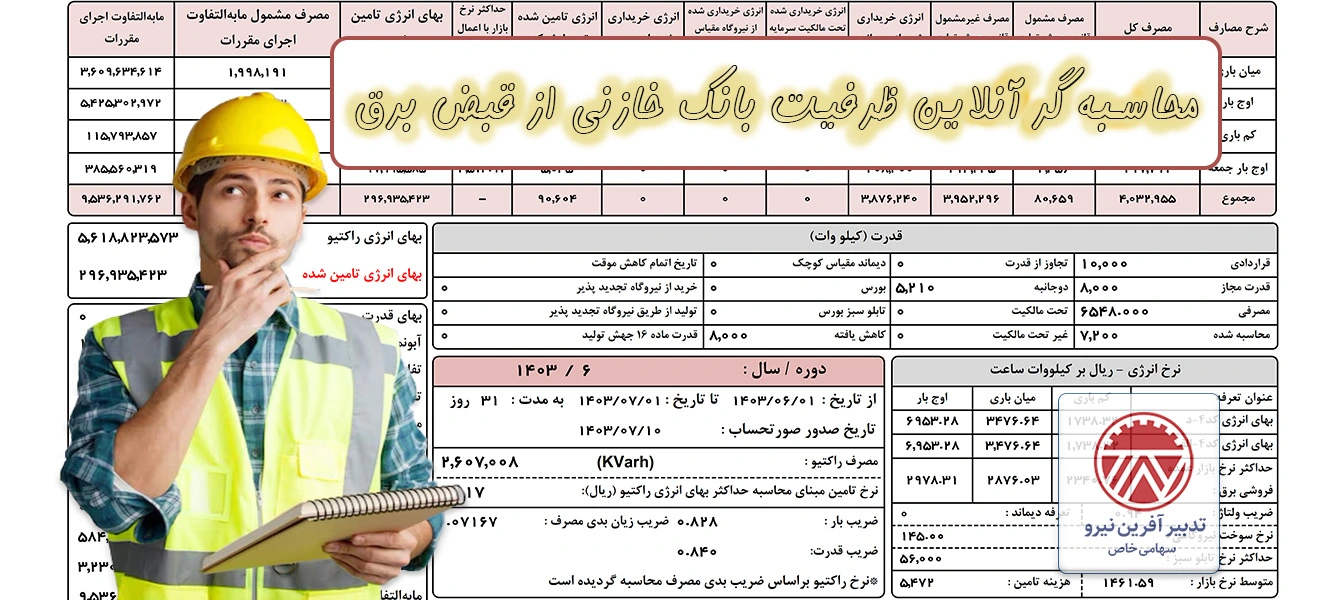 شرح مصارف
مصرف کل
مصرف مشمول
مصرف غیرمشمول
انرژی خریداری
انرژی خریداری شده تحت مالکیت سرمایه
انرژی خریداری شده از نیروگاه مقیاس
انرژی خریداری
انرژی تامین شده
حداکثر نرخ بازار با اعمال
بهای انرژی تامین
مصرف مشمول مابه‌التفاوت اجرای مقررات
مابه‌التفاوت اجرای مقررات
میان باری
۱,۹۹۸,۱۹۱
۳,۶۰۹,۶۳۴,۶۱۴
اوج بار
۵,۴۲۵,۳۰۲,۹۷۲
کم باری
۱۱۵,۷۹۳,۸۵۷
اوج بار جمعه
۳۸۵,۵۶۰,۳۱۹
محاسبه گر آنلاین ظرفیت بانک خازنی از قبض برق
مجموع
۴,۰۳۲,۹۵۵
۸۰,۶۵۹
۳,۹۵۲,۲۹۶
۳,۸۷۶,۲۴۰
۰
۰
۰
۹۰,۶۰۴
–
۲۹۶,۹۳۵,۴۲۳
۹,۵۳۶,۲۹۱,۷۶۲
قدرت (کیلو وات)
قراردادی ۱۰,۰۰۰
تجاوز از قدرت ۰
دیماند مقیاس کوچک ۰
تاریخ اتمام کاهش موقت
قدرت مجاز ۸,۰۰۰
دوجانبه ۵,۲۱۰
بورس ۰
خرید از نیروگاه تجدید پذیر ۰
مصرفی ۶۵۴۸.۰۰۰
تحت مالکیت ۰
تابلو سبز بورس ۰
تولید از طریق نیروگاه تجدید پذیر ۰
محاسبه شده ۷,۲۰۰
غیر تحت مالکیت ۰
کاهش یافته ۰
قدرت ماده ۱۶ جهش تولید ۸,۰۰۰
بهای انرژی راکتیو ۵,۶۱۸,۸۲۳,۵۷۳
بهای انرژی تامین شده ۲۹۶,۹۳۵,۴۲۳
بهای قدرت ۰
نرخ انرژی - ریال بر کیلووات ساعت
عنوان تعرفه
کم باری
میان باری
اوج بار
بهای انرژی کد۴-د
۳۴۷۶.۶۴
۶۹۵۳.۲۸
بهای انرژی
۳,۴۷۶.۶۴
۶,۹۵۳.۲۸
حداکثر نرخ بازار
فروشی برق
۲۸۷۶.۰۳
۲۹۷۸.۳۱
ضریب ولتاژ
تعرفه دیماند : ۰
نرخ سوخت
۱۴۵.۰۰
حداکثر نرخ تابلو سبز
۵۶,۰۰۰
متوسط نرخ بازار : ۱۴۶۱.۵۹
هزینه تامین : ۵,۴۷۲
دوره / سال : ۶ / ۱۴۰۳
از تاریخ : ۱۴۰۳/۰۶/۰۱ تا تاریخ : ۱۴۰۳/۰۷/۰۱ به مدت : ۳۱ روز
تاریخ صدور صورتحساب : ۱۴۰۳/۰۷/۱۰
مصرف راکتیو : (KVarh) ۲,۶۰۷,۰۰۸
نرخ تامین مبنای محاسبه حداکثر بهای انرژی راکتیو (ریال):
ضریب بار : ۰.۸۲۸ ضریب زیان بدی مصرف :
ضریب قدرت: ۰.۸۴۰
*نرخ راکتیو براساس ضریب بدی مصرف محاسبه گردیده است
تدبیر آفرین نیرو
سهامی خاص